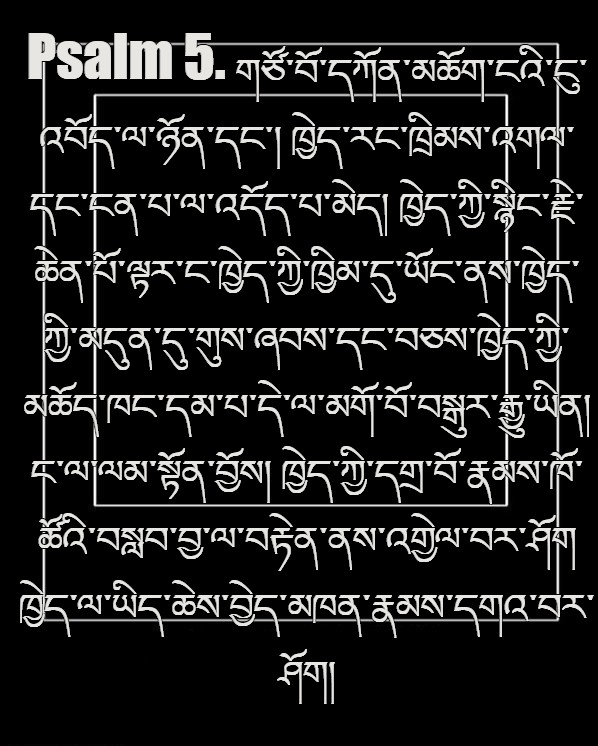 Psalm 5. གཙོ་བོ་དཀོན་མཆོག་ངའི་ངུ་
འབོད་ལ་ཉོན་དང་། ཁྱེད་རང་ཁྲིམས་འགལ་
དང་ངན་པ་ལ་འདོད་པ་མེད། ཁྱེད་ཀྱི་སྙིང་རྗེ་
ཆེན་པོ་ལྟར་ང་ཁྱེད་ཀྱི་ཁྱིམ་དུ་ཡོང་ནས་ཁྱེད་
ཀྱི་མདུན་དུ་གུས་ཞབས་དང་བཅས་ཁྱེད་ཀྱི་
མཆོད་ཁང་དམ་པ་དེ་ལ་མགོ་བོ་བསྒུར་རྒྱུ་ཡིན།
ང་ལ་ལམ་སྟོན་བྱོས། ཁྱེད་ཀྱི་དགྲ་བོ་རྣམས་ཁོ་
ཚོའི་བསླབ་བྱ་ལ་བརྟེན་ནས་འགྱེལ་བར་ཤོག
ཁྱེད་ལ་ཡིད་ཆེས་བྱེད་མཁན་རྣམས་དགའ་བར་
ཤོག།